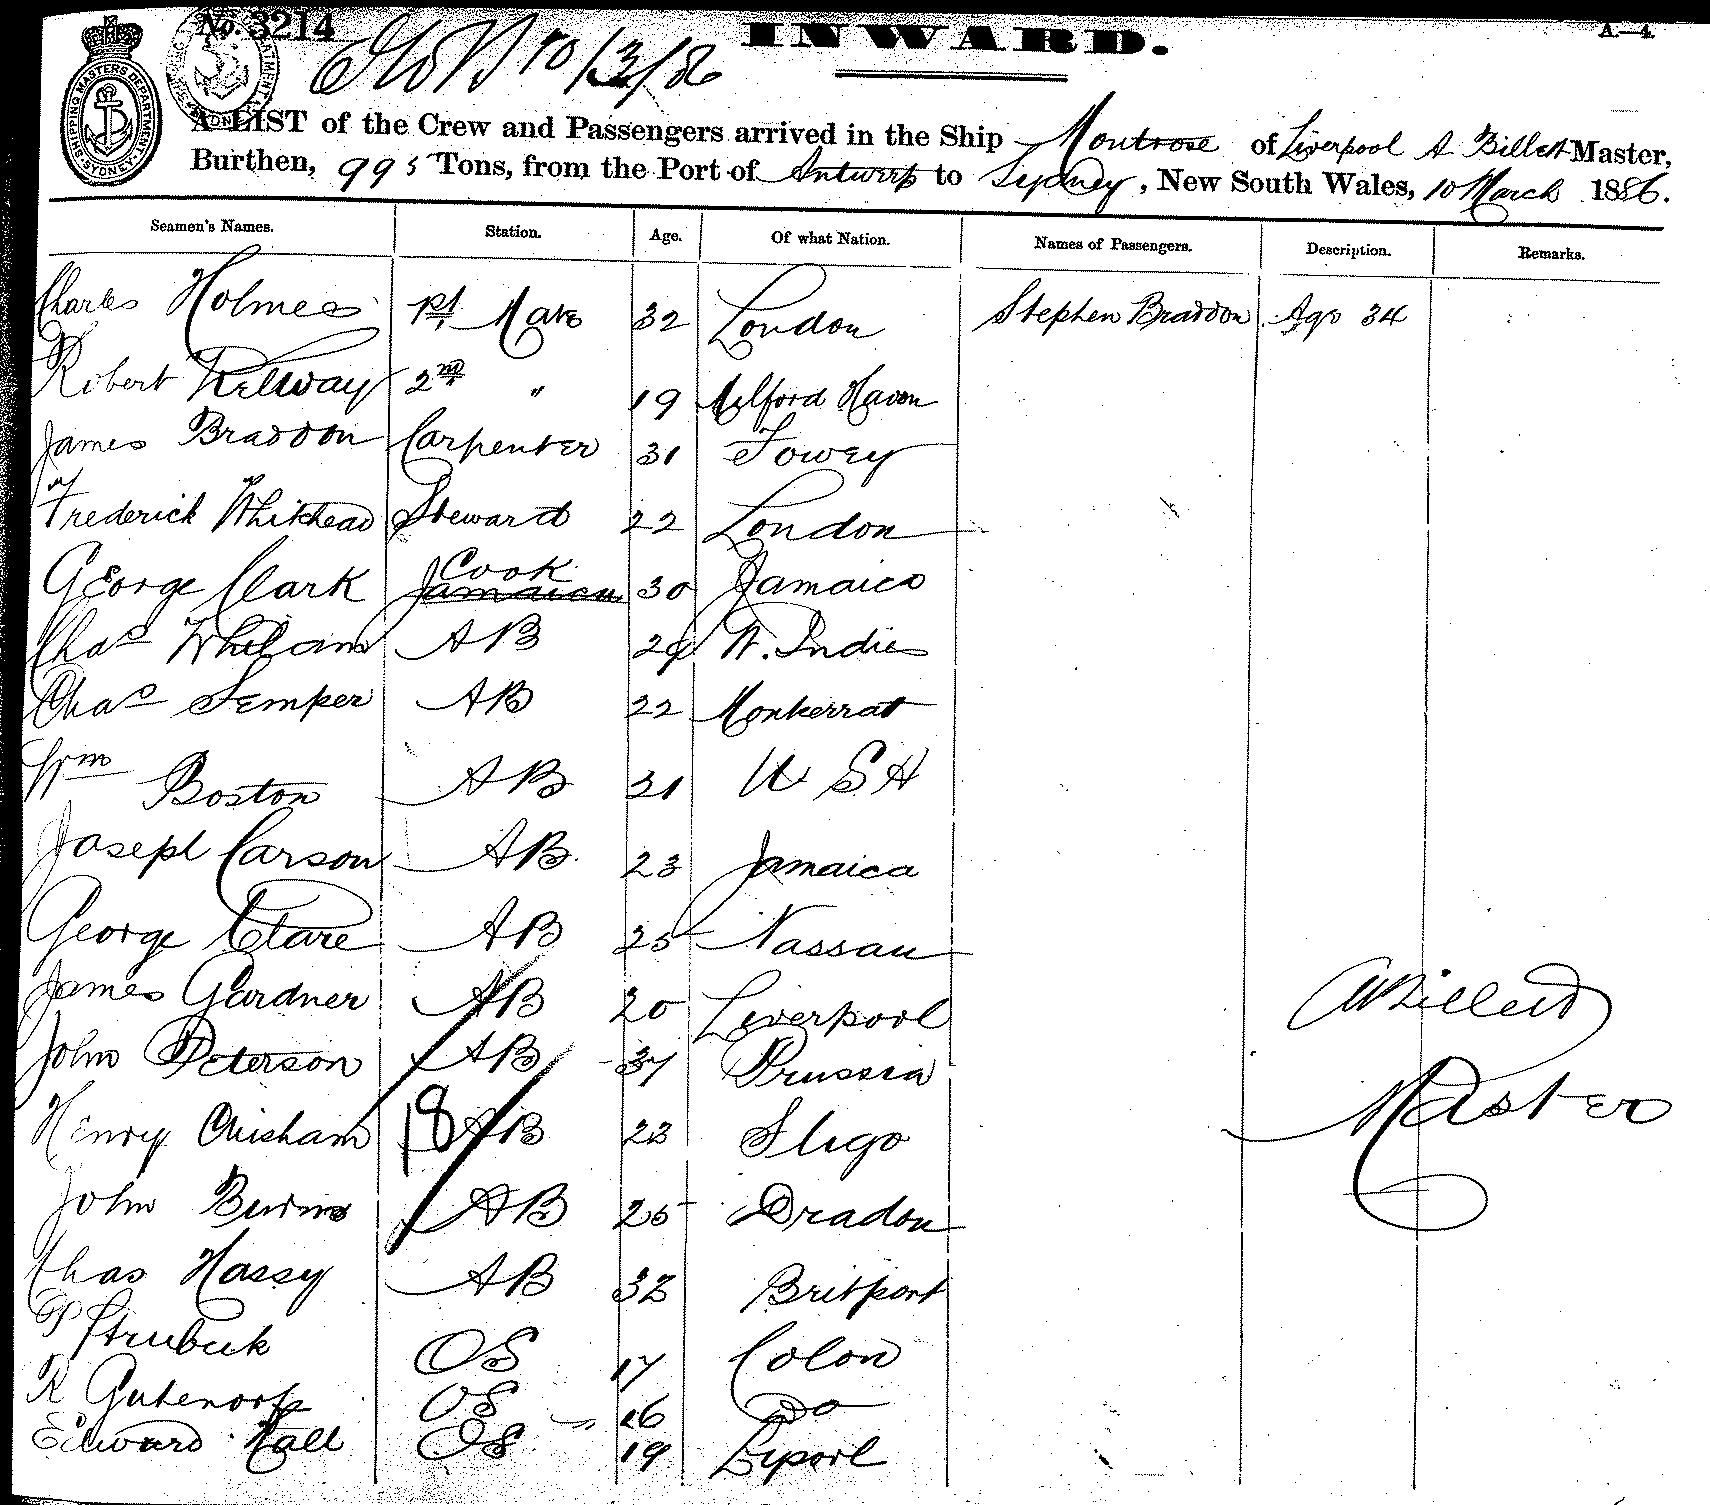 No. 3214
10/3/86
INWARD.
A.—4.
SHIPPING MASTERS DEPARTMENT
A LIST of the Crew and Passengers arrived in the Ship Montrose of Liverpool A Billett Master,
Burthen, 995 Tons, from the Port of Antwerp to Sydney, New South Wales, 10 March 1886.
Seamen's Names. Station. Age. Of what Nation. Names of Passengers. Description. Remarks.
Charles Holmes 1st Mate 32 London Stephen Braddon Age 34
Robert Kelway 2nd " 19 Milford Haven
James Braddon Carpenter 31 Fowey
Frederick Whitehead Steward 22 London
George Clark Jamaica Cook 30 Jamaica
Chas 29 A B W. Indies
Chas Semper A B 22 Montserrat
Wm Boston A B 31 U S A
Joseph Carson A B 23 Jamaica
George Clare A B 25 Nassau
James Gardner A B 20 Liverpool
John Peterson A B 37 Prussia
Henry Chisham 18 A B 23 Sligo
John Burns A B 25
Chas Hassy A B 32 Britport
P O S 17 Colon
R O S 16 Do
Edward Hall O S 19 Lpool
A Billett
Master